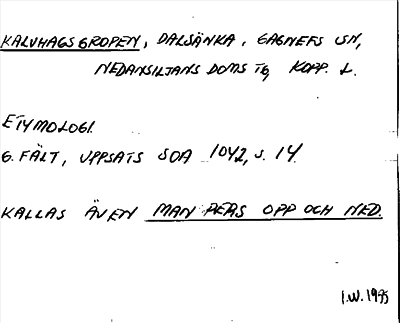 KALVHAGSGROPEN, DALSÄNKA, GAGNEFS SN,
NEDANSILJANS DOMS TG, KOPP. L.
ETYMOLOGI.
G. FÄLT, UPPSATS SOA 1042, S. 14.
KALLAS ÄVEN MAN PERS OPP OCH NED.
I.W. 1995